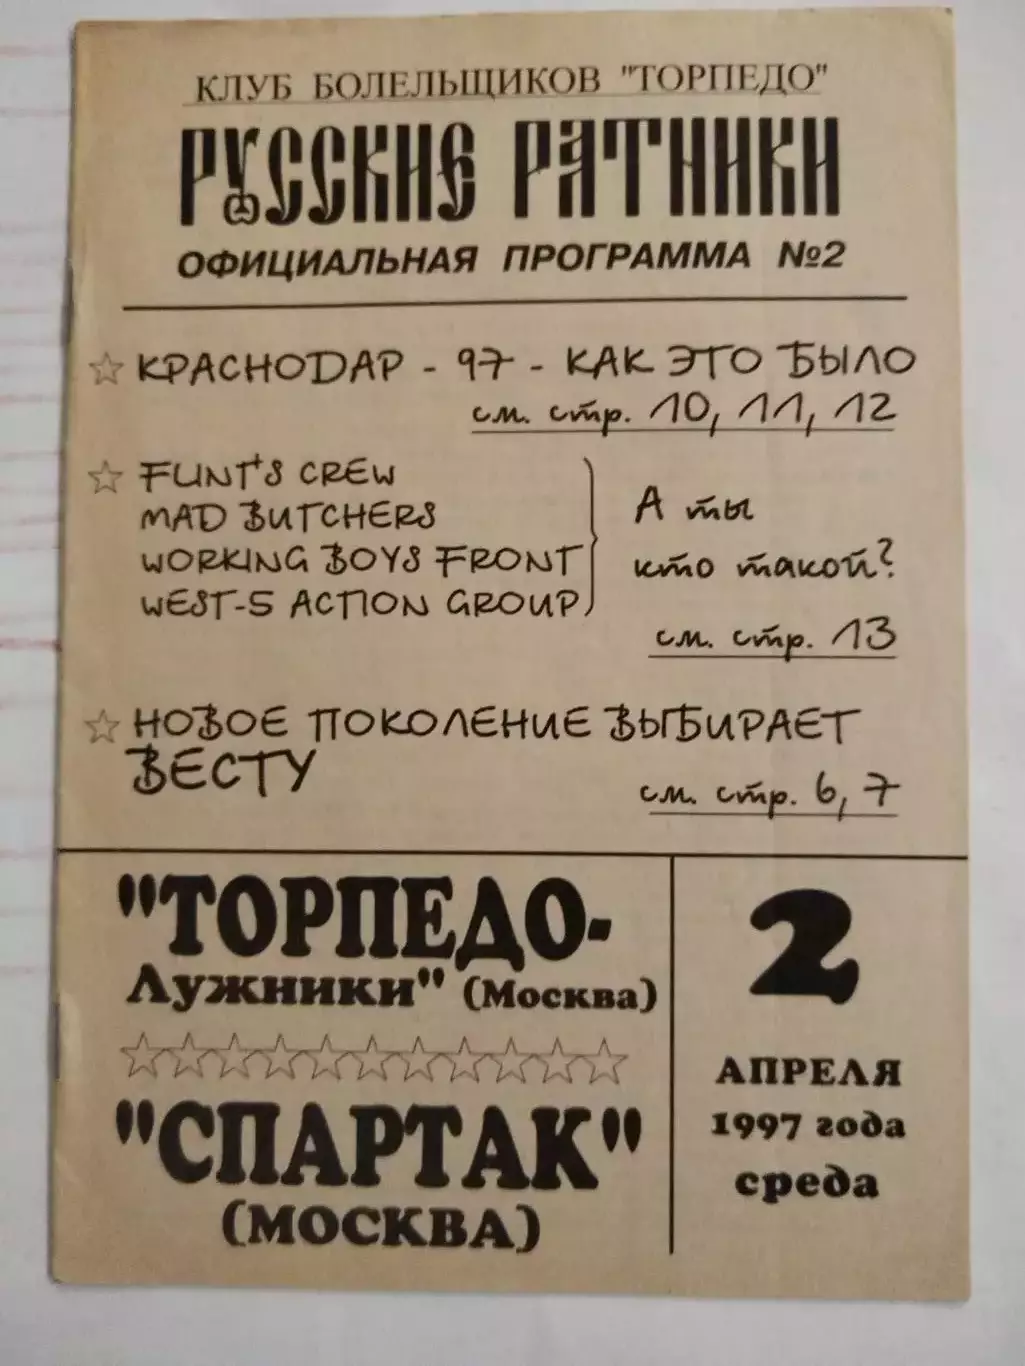 КЛУБ БОЛЕЛЬЩИКОВ "ТОРПЕДО"
РУССКИЕ РАТНИКИ
ОФИЦИАЛЬНАЯ ПРОГРАММА №2
КРАСНОДАР - 97 - КАК ЭТО БЫЛО
см. стр. 10, 11, 12
FUNT'S CREW
MAD BUTCHERS
WORKING BOYS FRONT
WEST-5 ACTION GROUP
А ты
кто такой?
см. стр. 13
НОВОЕ ПОКОЛЕНИЕ ВЫБИРАЕТ
ВЕСТУ
см. стр. 6, 7
"ТОРПЕДО-
Лужники" (Москва)
"СПАРТАК"
(МОСКВА)
2
АПРЕЛЯ
1997 года
среда